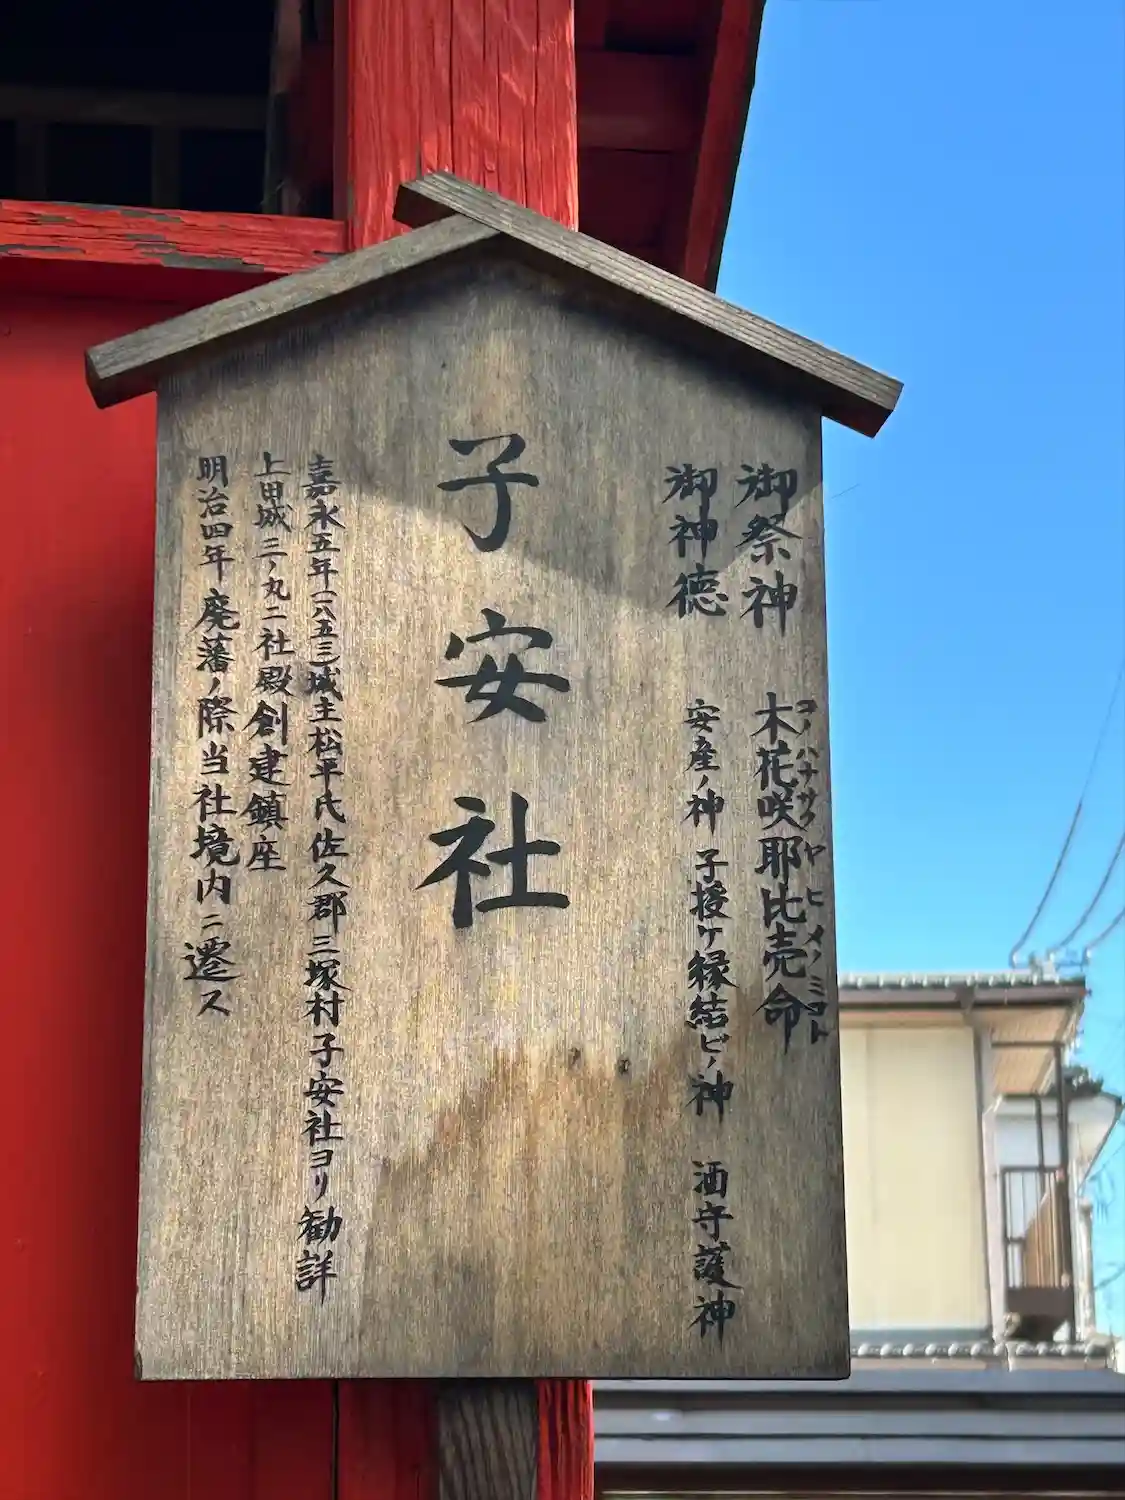 御祭神 木花咲耶比売命
コノハナサクヤヒメノミコト
御神徳 安産ノ神 子授ケ縁結ビノ神 酒守護神
子安社
嘉永五年(一八五三)城主松平氏佐久郡三塚村子安社ヨリ勧詳
上田城三ノ丸二社殿創建鎮座
明治四年廃藩ノ際当社境内ニ遷ス